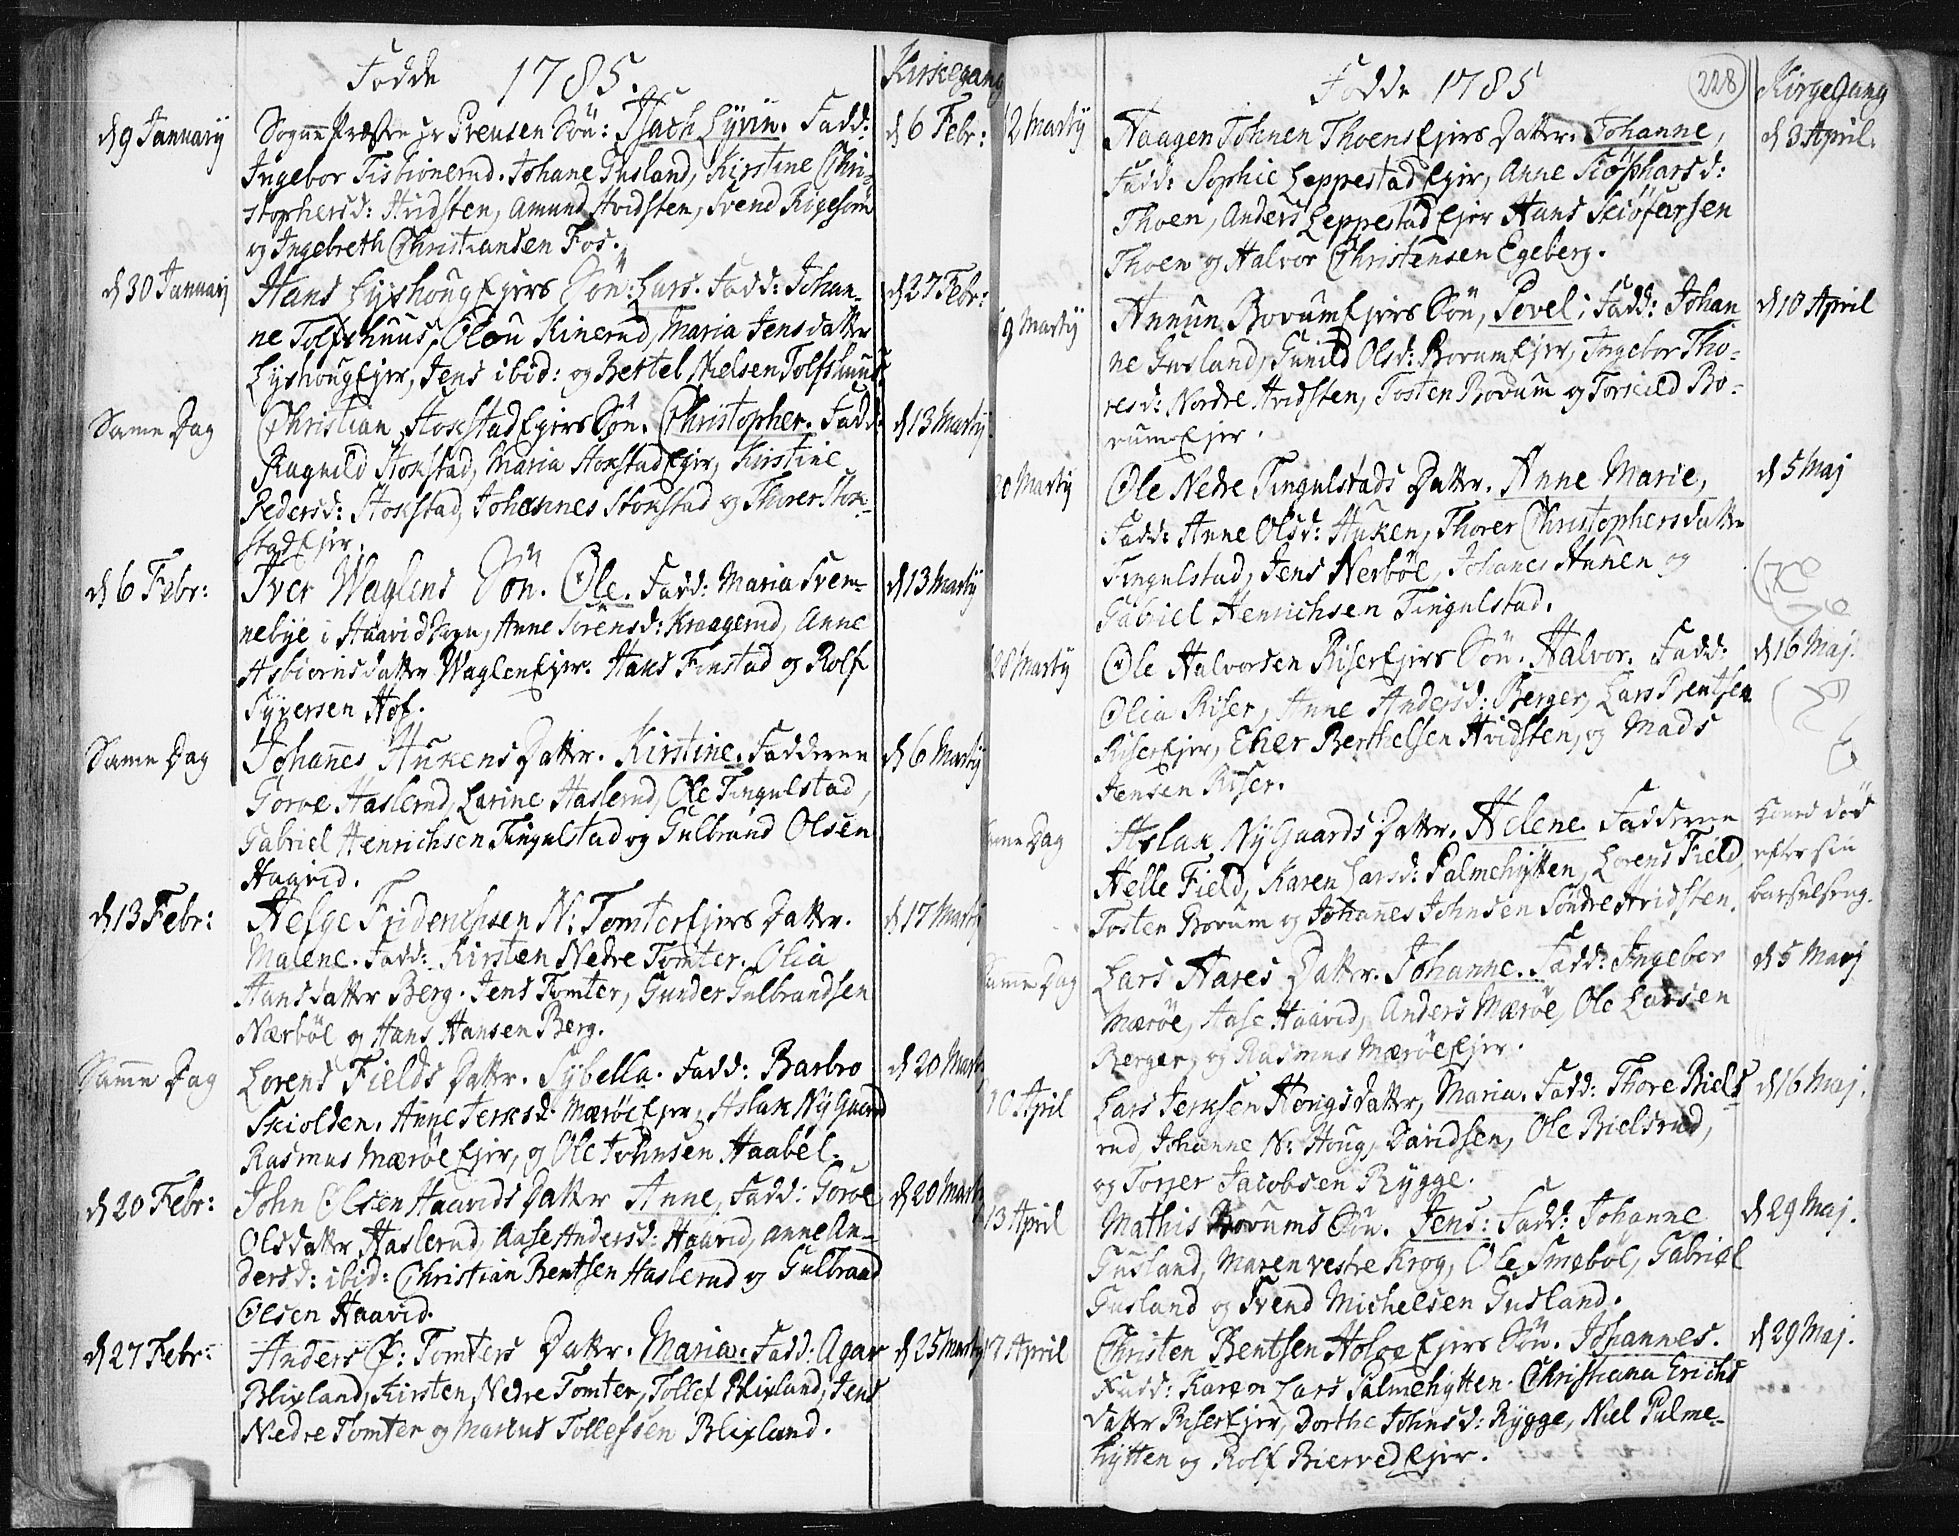 Fødde 1785.
Kirkegang
d 9 Januarij
Sognepræsten hr Preusen Sön: Isach Lyvin. Fadd:
d 6 Febr:
Ingebor Tistionerud. Johane Gusland, Kirstine Chri-
stophersd: Hvidsten, Amund Hvidsten, Svend Rigesom
og Ingebreth Christiansen Fos.
d 30 Januarij
Hans Lyshoug Ejers Sön: Lars. Fadd: Johan-
d 27 Febr:
ne Tolfshuus, Olou Kinerud, Maria Jensdattr
Lyshoug Ejer, Jens ibid: og Bertel Nielsen Tolfshuus
Same Dag
Christian Hokstad Ejers Sön. Christopher. Fadd:
d 13 Martij
Ragnild Stokstad, Maria Hokstad Ejer, Kirstine
Pedersd: Hokstad, Johannes Stokstad og Thorer Stok-
stad Ejer.
d 6 Febr:
Iver Waglens Sön. Ole. Fadd: Maria Svem-
d 13 Martij
nebye i Haavid Sogn, Anne Sörensd: Kraagerud, Anne
Asbiörnsdattr Waglen Ejer. Hans Finstad og Rolf
Syversen Hof.
Same Dag
Johannes Hukens Dattr. Kirstine. Fadderne
d 6 Martij
Gorve Haslerud, Larine Haslerud, Ole Tingulstad,
Gabriel Henrichsen Tingulstad og Gulbrand Olsen
Haavid.
d 13 Febr:
Helge Fridenchsen N: Tomter Ejers Dattr.
d 17 Martij
Malene. Fadd: Kirsten Nedre Tomter. Olia
Hansdattr Berg. Jens Tomter, Gunder Gulbrandsen
Nærböl og Hans Hansen Berg.
Samme Dag
Lorens Fields Dattr. Sybella. Fadd: Barbro
d 20 Martij
Skiolden. Anne Jerksd: Mæröe Ejer, Aslak Ny Gaard
Rasmus Mæröe Ejer, og Ole Johnsen Haaböl.
d 20 Febr:
John Olsen Haavids Dattr Anne, Fadd: Gorve
d 20 Martij
Olsdattr Haslerud, Aase Andersd: Haavid, Anne An-
dersd: ibid: Christian Bentsen Haslerud og Gulbrand
Olsen Haavid.
d 27 Febr:
Anders Ø: Tomters Dattr. Maria. Fadd: Agar
d 25 Martij
Blixland, Kirsten Nedre Tomter, Tollef Blixland, Jens
Nedre Tomter og Marcus Tollefsen Blixland.
Fødde 1785
228
Kirgegang
2 Martij
Haagen Johnen Thoens Ejers Dattr. Johanne,
d 3 April.
Fadd: Sophie Leppestad Ejer, Anne Sciöpharsd:
Thoen, Anders Leppestad Ejer Hans Sciöfarsen
Thoen og Halvor Christensen Egeberg.
9 Martij
Annun Borum Ejers Sön, Povel; Fadd: Johan
d 10 April
ne Gusland, Gunild Olsd: Borum Ejer, Ingebor Tho-
resd: Nordre Hvidsten, Tosten Borum og Torkild Bo-
rum Ejer.
20 Martij
Ole Nedre Tingulstads Dattr. Anne Marie,
d 5 Maj
Fadd: Anne Olsd: Huken, Thorer Christophersdattr
Tingulstad, Jens Nerböl, Johanes Huken og
Gabriel Henrichsen Tingulstad.
28 Martij
Ole Halvorsen Riser Ejers Sön. Halvor. Fadd:
d 16 Maj.
Olia Riser, Anne Andersd: Berger, Lars Bentsen
Riser Ejer, Eller Berthelsen Hvidsten, og Mads
Hansen Riser.
Same Dag
Aslak Ny Gaards Dattr. Helene. Fadderne
Helle Field, Karen Larsd: Palmehytten, Lorens Field,
efter sin
Tosten Borum og Johannes Johnsen Söndre Hvidsten.
barselseng.
Samme Dag
Lars Hares Dattr. Johanne. Fadd: Ingebor
d 5 Maj
Mæröe, Aase Haavid, Anders Mæröe, Ole Larsen
Berger, og Rasmus Mæröe Ejer.
10 April
Lars Jerksen Hougs Dattr, Maria. Fadd: Thore Biels
d 16 Maj.
rud, Johanne N: Houg, Davidsen, Ole Bielsrud,
og Torjer Jacobsen Rygge.
13 April
Mathis Borums Sön. Jens: Fadd: Johanne
d 29 Maj.
Gusland, Maren vestre Krog, Ole Smeböl, Gabriel
Gusland og Svend Michelsen Gusland.
17 April
Christen Bentsen Holoe Ejers Sön. Johannes.
d 29 Maj.
Fadd: Karen Lars Palmehytten. Christiana Erichs
dattr Riser Ejer, Dorthe Johnsd: Rygge, Niel Palme-
hytten og Rolf Bierved Ejer.